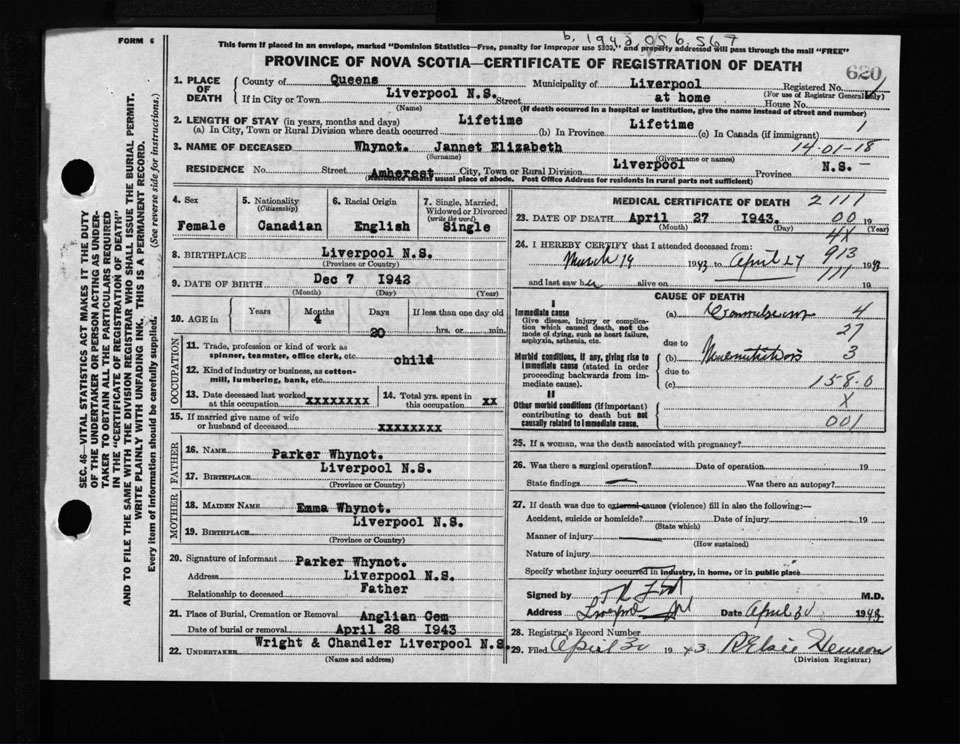 b. 1942 056567
FORM 6
This form if placed in an envelope, marked "Dominion Statistics—Free, penalty for improper use $300," and properly addressed will pass through the mail "FREE"
PROVINCE OF NOVA SCOTIA—CERTIFICATE OF REGISTRATION OF DEATH
620
1. PLACE OF DEATH
County of Queens Municipality of Liverpool Registered No.
(For use of Registrar General only)
If in City or Town Liverpool N.S. Street at home House No.
(Name) (If death occurred in a hospital or institution, give the name instead of street and number)
2. LENGTH OF STAY (in years, months and days)
(a) In City, Town or Rural Division where death occurred Lifetime (b) In Province Lifetime (c) In Canada (if immigrant) 1
14-01-18
3. NAME OF DECEASED Whynot. Jannet Elizabeth
(Surname) (Given name or names)
RESIDENCE No. Street Amherest City, Town or Rural Division Liverpool Province N.S.
(Residence means usual place of abode. Post Office Address for residents in rural parts not sufficient)
4. Sex Female
5. Nationality (Citizenship) Canadian
6. Racial Origin English
7. Single, Married, Widowed or Divorced (write the word) Single
8. BIRTHPLACE Liverpool N.S.
(Province or Country)
9. DATE OF BIRTH Dec 7 1942
(Month) (Day) (Year)
10. AGE in Years Months 4 Days 20 If less than one day old hrs. or min.
OCCUPATION
11. Trade, profession or kind of work as spinner, teamster, office clerk, etc. child
12. Kind of industry or business, as cotton-mill, lumbering, bank, etc.
13. Date deceased last worked at this occupation xxxxxxxx
14. Total yrs. spent in this occupation xx
15. If married give name of wife or husband of deceased xxxxxxxx
FATHER
16. NAME Parker Whynot.
17. BIRTHPLACE Liverpool N.S.
(Province or Country)
MOTHER
18. MAIDEN NAME Emma Whynot.
19. BIRTHPLACE Liverpool N.S.
(Province or Country)
20. Signature of informant Parker Whynot.
Address Liverpool N.S.
Relationship to deceased Father
21. Place of Burial, Cremation or Removal Anglian Cem
Date of burial or removal April 28 1943
22. UNDERTAKER Wright & Chandler Liverpool N.S.
(Name and address)
MEDICAL CERTIFICATE OF DEATH
2111
23. DATE OF DEATH April 27 1943. 00 19
(Month) (Day) (Year)
4X
24. I HEREBY CERTIFY that I attended deceased from:
March 19 1943 to April 27 1943
913
111
and last saw her alive on
CAUSE OF DEATH
I
Immediate cause
Give disease, injury or complication which caused death, not the mode of dying, such as heart failure, asphyxia, asthenia, etc.
(a) Convulsion 4
27
due to
Morbid conditions, if any, giving rise to immediate cause (stated in order proceeding backwards from immediate cause).
(b) 3
due to
(c) 158.0
II
Other morbid conditions (if important) contributing to death but not causally related to immediate cause.
X
001
25. If a woman, was the death associated with pregnancy?
26. Was there a surgical operation? Date of operation 19
State findings Was there an autopsy?
27. If death was due to external causes (violence) fill in also the following:—
Accident, suicide or homicide? Date of injury 19
(State which)
Manner of injury
(How sustained)
Nature of injury
Specify whether injury occurred in industry, in home, or in public place
Signed by M.D.
Address Liverpool Date April 30 1943
28. Registrar's Record Number
29. Filed April 30 1943
(Division Registrar)
SEC. 46—VITAL STATISTICS ACT MAKES IT THE DUTY
OF THE UNDERTAKER OR PERSON ACTING AS UNDER-
TAKER TO OBTAIN ALL THE PARTICULARS REQUIRED
IN THE "CERTIFICATE OF REGISTRATION OF DEATH"
AND TO FILE THE SAME WITH THE DIVISION REGISTRAR WHO SHALL ISSUE THE BURIAL PERMIT.
WRITE PLAINLY WITH UNFADING INK. THIS IS A PERMANENT RECORD.
Every item of information should be carefully supplied. (See reverse side for instructions.)